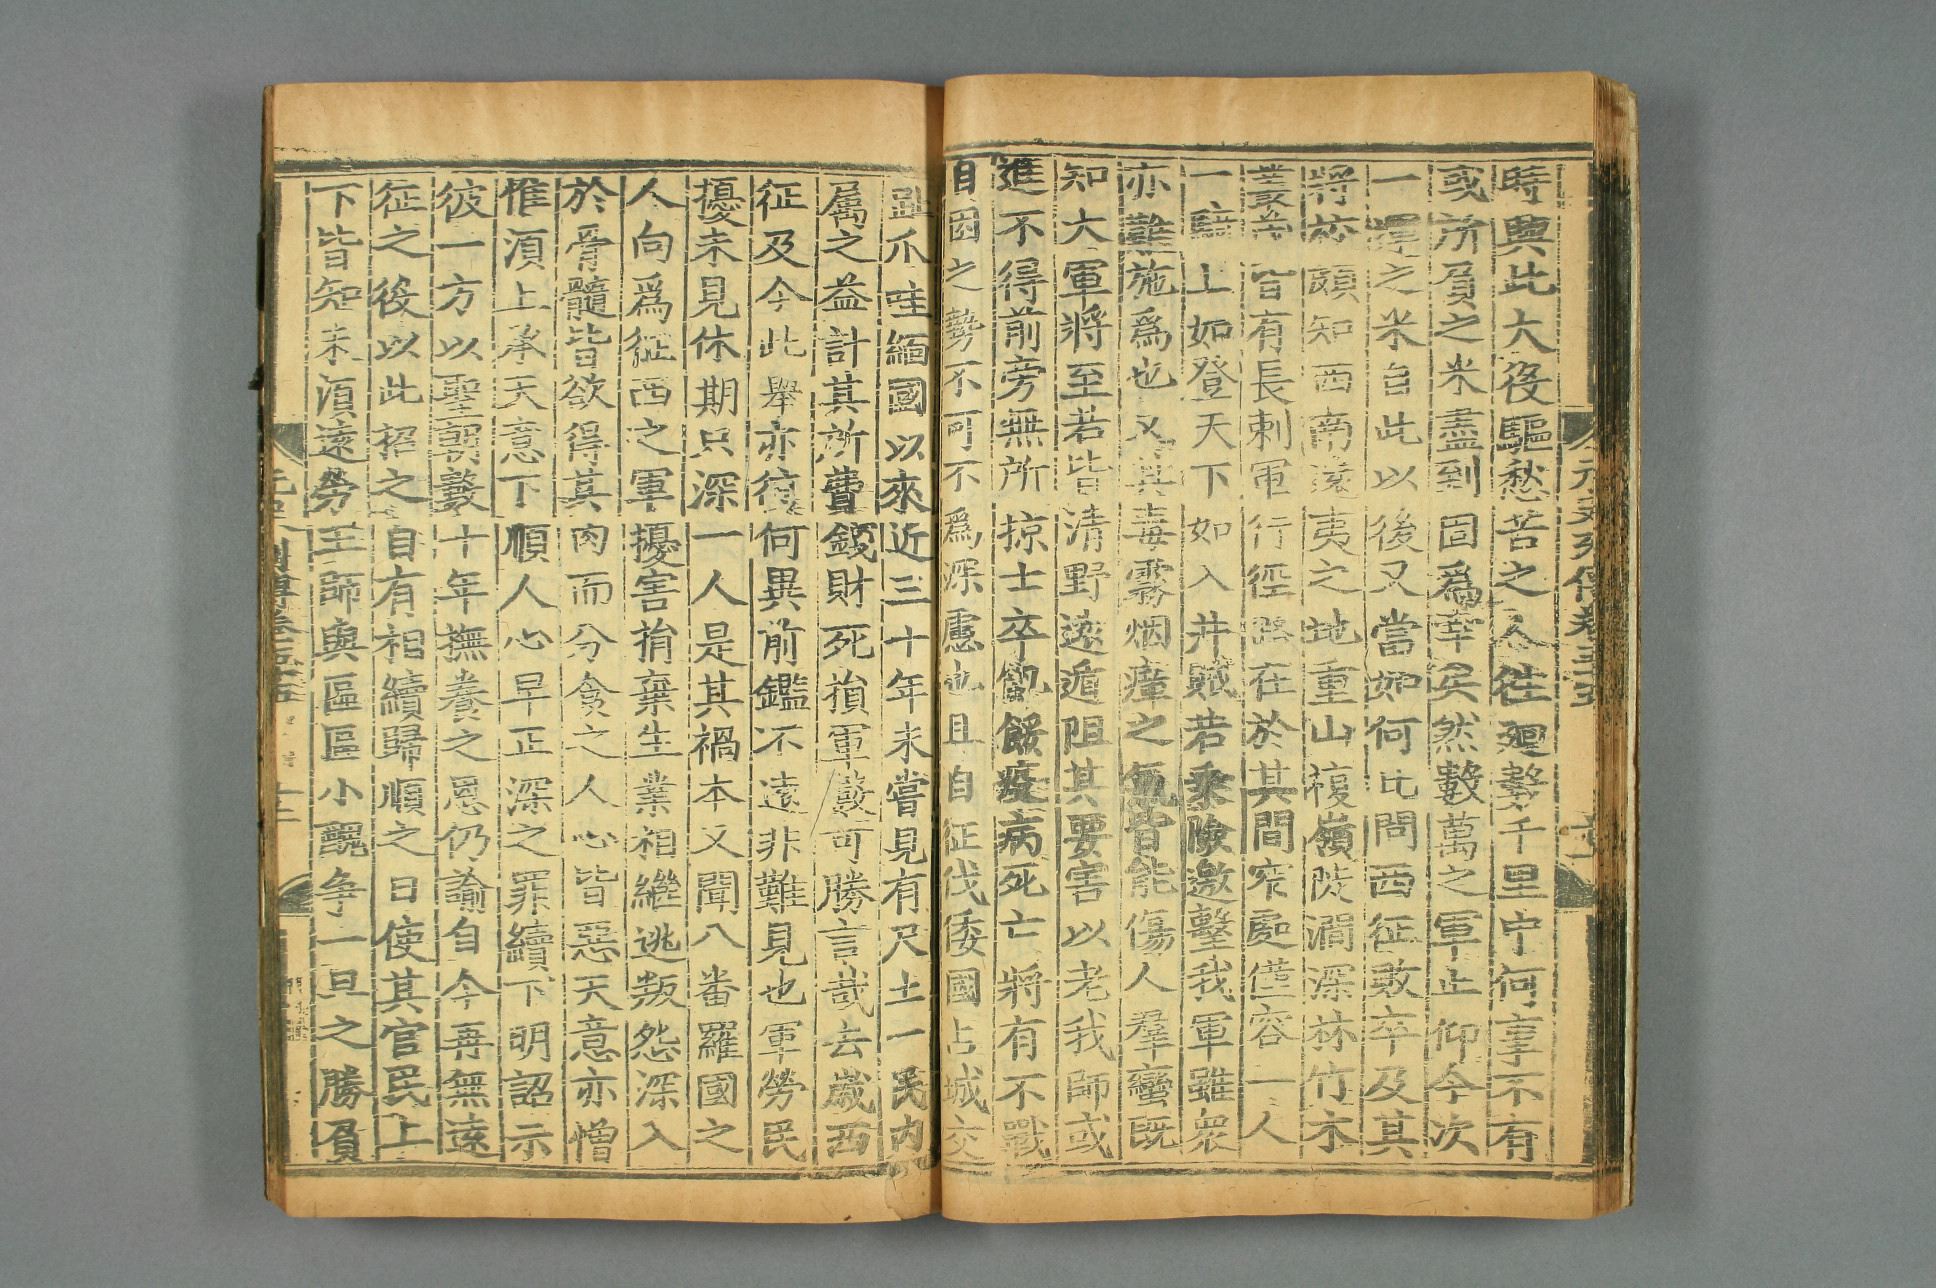 時興此大役驅愁苦之人往廻數千里中何事不有
或所負之米盡到固爲幸矣然數萬之軍止仰今次
一運之米自此以後又當如何比問西征敗卒及其
將校頗知西南遠夷之地重山複嶺陡澗深林竹木
叢茂皆有長刺軍行徑路在於其間窄處僅容一人
一騎上如登天下如入井賊若乘險邀擊我軍雖衆
亦難施爲也又其毒霧烟瘴之氣皆能傷人羣蠻既
知大軍將至若皆清野遠遁阻其要害以老我師或
進不得前旁無所掠士卒飢餒疫病死亡將有不戰
自困之勢不可不爲深慮也且自征伐倭國占城交
趾爪哇緬國以來近三十年未嘗見有尺土一民内
屬之益計其所費錢財死損軍數可勝言哉去歲西
征及今此舉亦徃何異前鑑不遠非難見也軍勞民
擾未見休期只深一人是其禍本又聞八番羅國之
人向爲征西之軍擾害捐棄生業相繼逃叛怨深入
於骨髓皆欲得其肉而分食之人心皆惡天意亦憎
惟湏上承天意下順人心早正深之罪續下明詔示
彼一方以聖朝數十年撫養之恩仍諭自今再無遠
征之後以此招之自有相續歸順之日使其官民上
下皆知未湏遠勞王師與區區小醜爭一旦之勝負